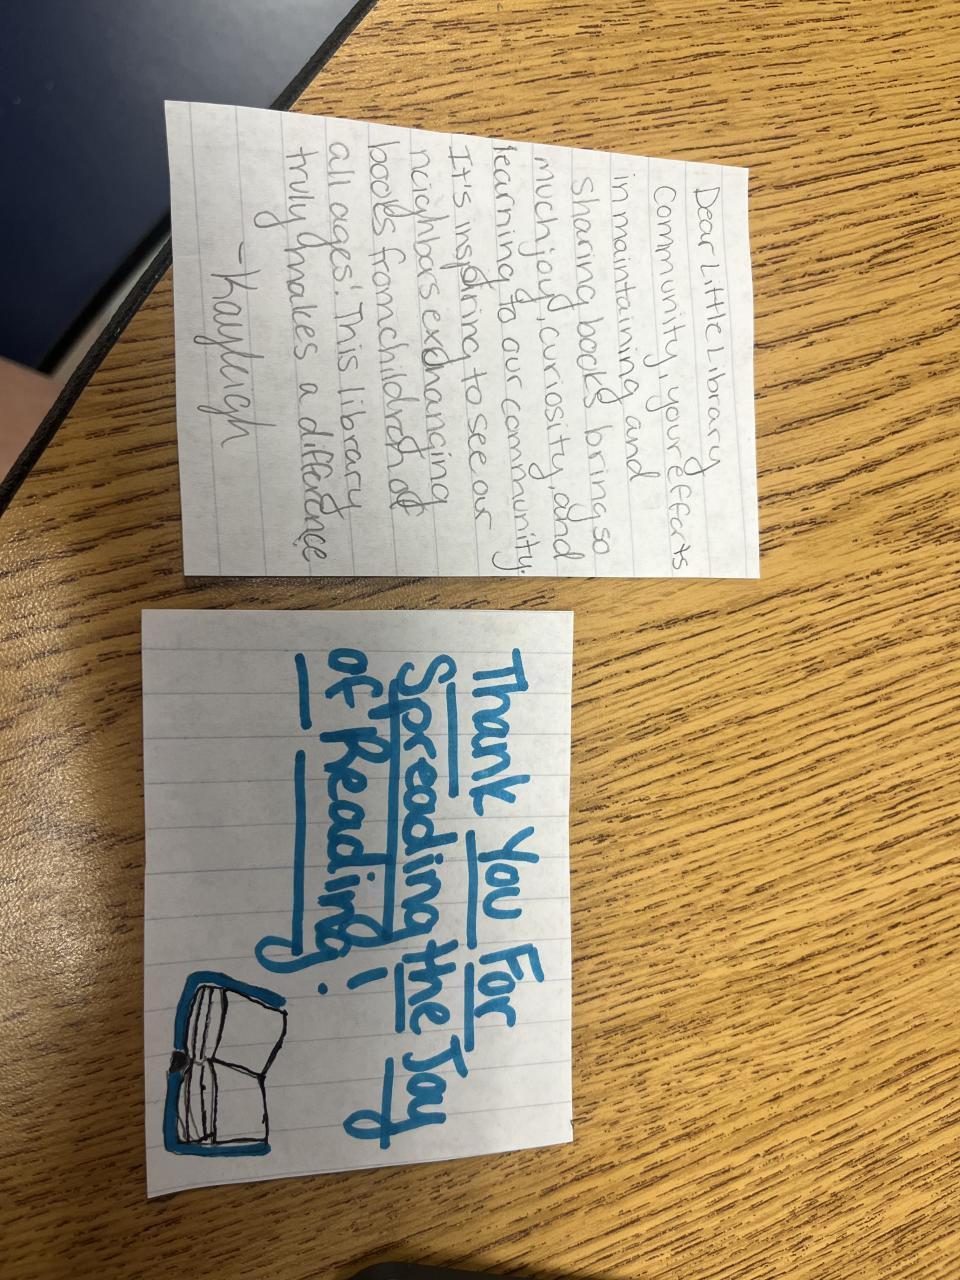 Dear Little Library
Community, your efforts
in maintaining and
sharing books bring so
much joy, curiosity, and
learning to our community.
It's inspiring to see our
neighbors exchanging
books from children of
all ages! This library
truly makes a difference
-Kayleigh
Thank You For
Spreading the Joy
of Reading!